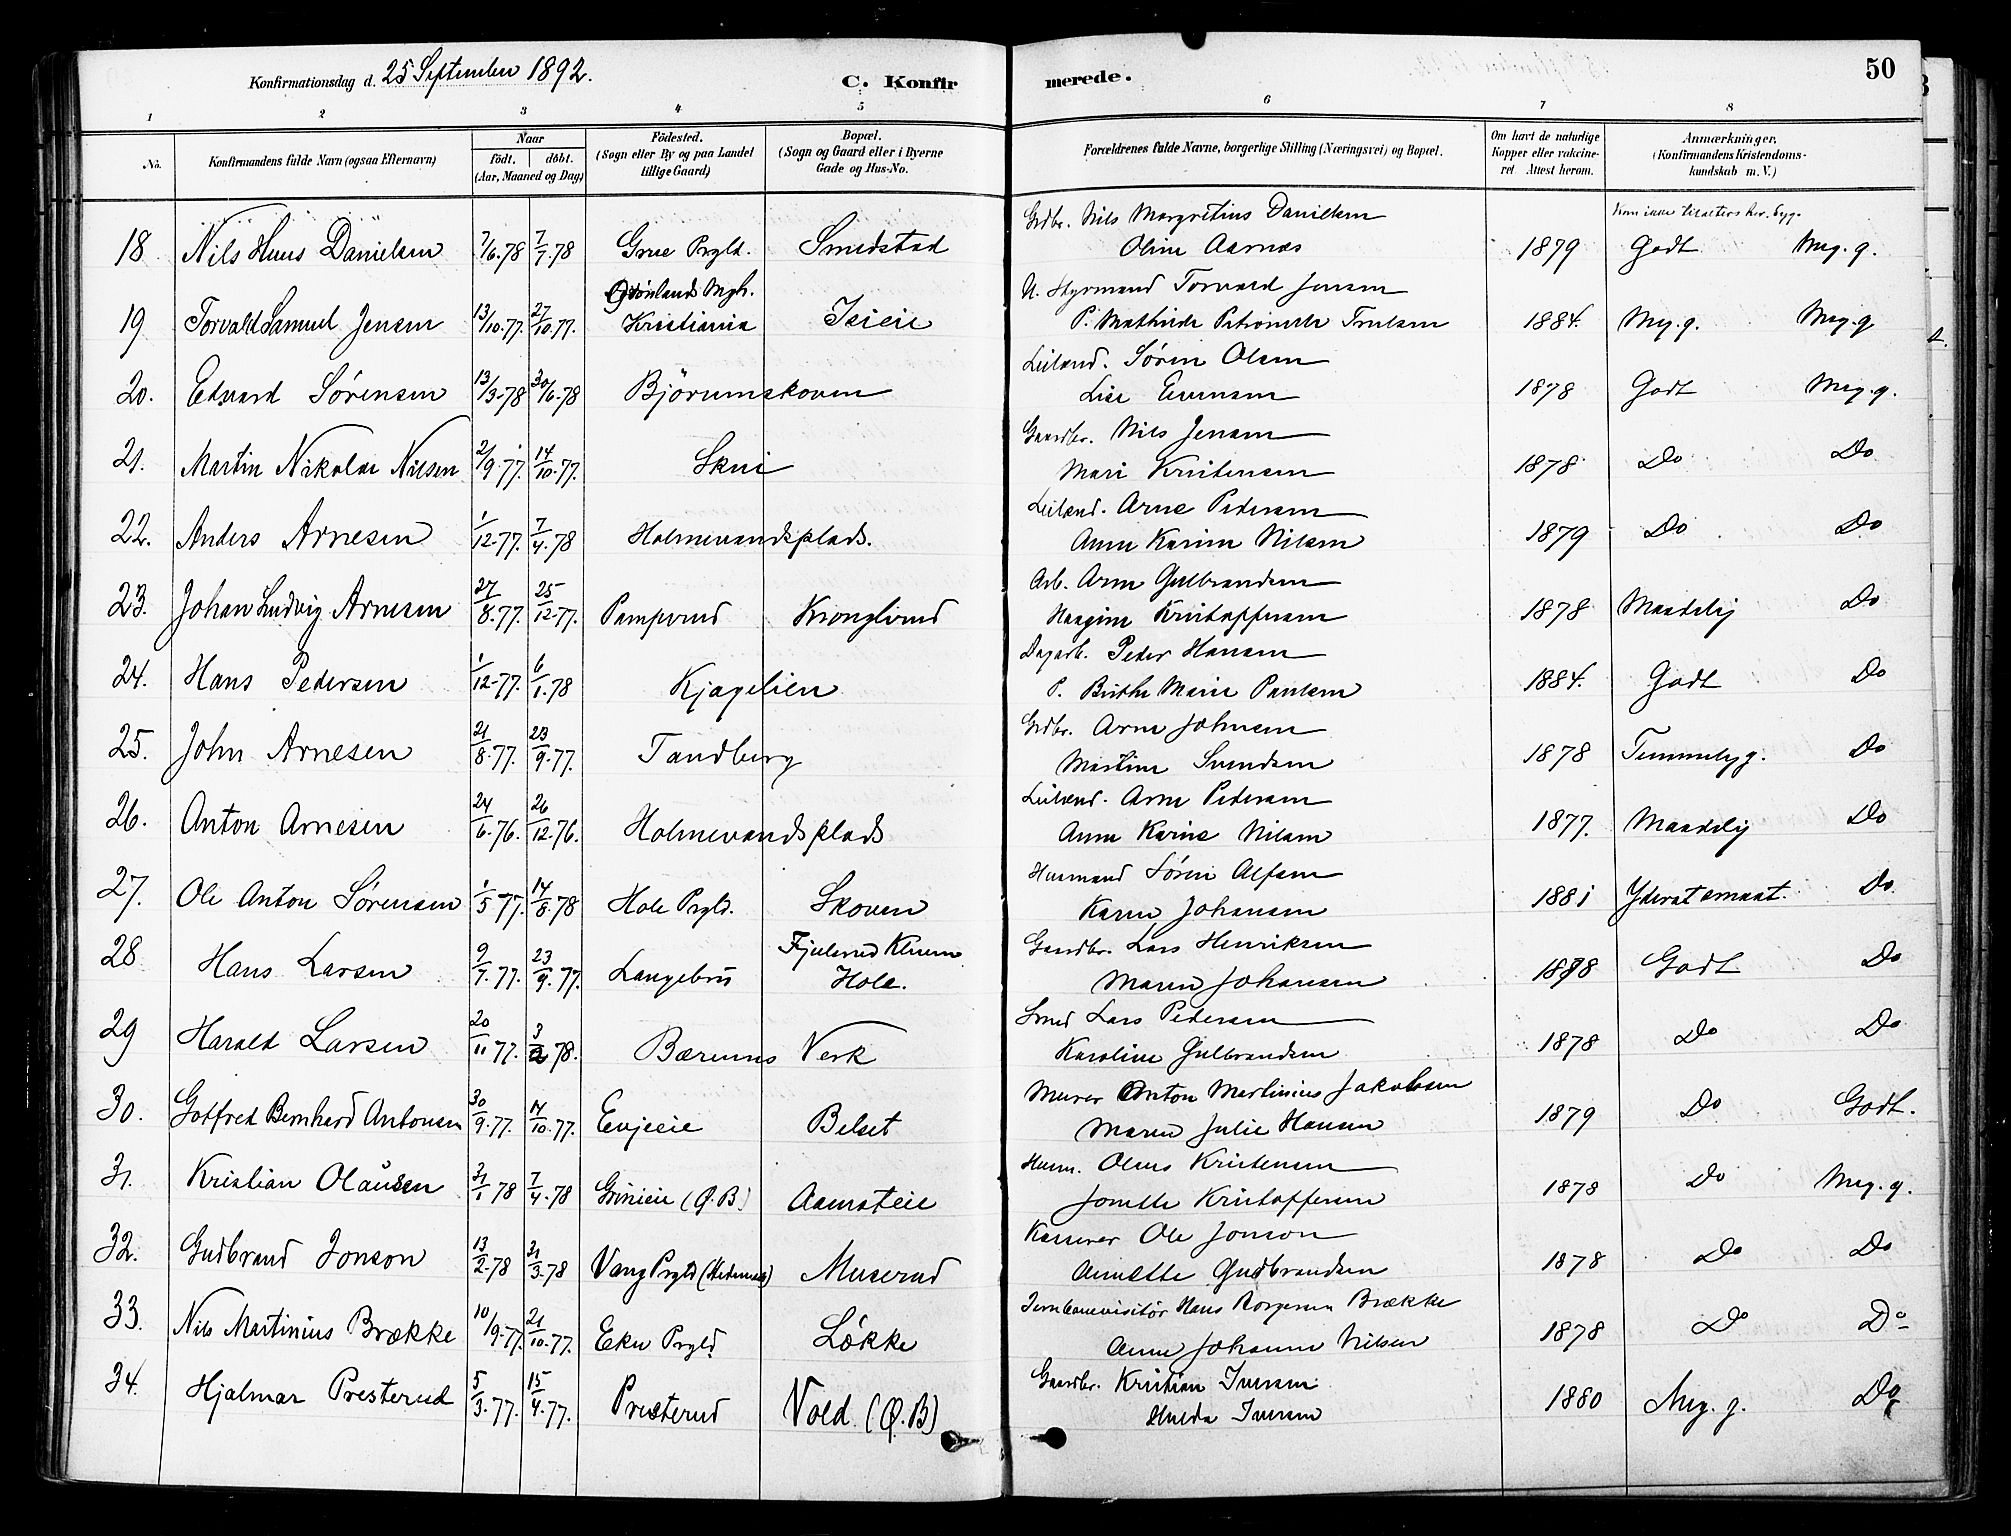 Konfirmationsdag d. 25 September 1892.
C. Konfirmerede.
50
1 2 3 4 5 6 7 8
No.
Konfirmandens fulde Navn (ogsaa Efternavn)
Naar
födt. döbt.
(Aar, Maaned og Dag)
Födested.
(Sogn eller By og paa Landet tillige Gaard)
Bopæl.
(Sogn og Gaard eller i Byerne Gade og Hus-No.
Forældrenes fulde Navne, borgerlige Stilling (Næringsvei) og Bopæl.
Om havt de naturlige Kopper eller vakcineret Attest herom.
Anmærkninger,
(Konfirmandens Kristendomskundskab m. V.)
18 Nils Huus Danielsen 7/6.78 7/7.78 Grue Prgld. Smedstad Grdbr. Nils Margretius Danielsen
Oline Aarnæs 1879 Godt Meg. g.
19 Torvald Samuel Jensen 13/10.77. 27/10.77. Grønlands Mgh.
Kristiania Isieie U. Styrmand Torvald Jensen
P. Mathilde Petronelle Trulsen 1884. Meg. g. Meg. g
20. Edvard Sørensen 13/3.78 30/6.78 Bjørumskoven Leilænd. Søren Olsen
Lise Evensen 1878 Godt Meg. g.
21. Martin Nikolai Nilsen 2/9.77. 14/10.77. Skui Gaardbr. Nils Jensen
Mari Kristensen 1878 Do Do
22. Anders Arnesen 1/12.77. 7/4.78 Holmevandsplads. Leilænd. Arne Pedersen
Anne Karine Nilsen 1879 Do Do
23. Johan Ludvig Arnesen 27/8.77. 25/12.77. Pamperud Kronglerud Arb. Arne Gulbrandsen
Haagine Kristoffersen 1878 Maadelig Do
24. Hans Pedersen 1/12.77. 6/1.78 Kjagelien Dagarb. Peder Hansen
P. Birthe Marie Paulsen 1884. Godt Do
25. John Arnesen 21/8.77. 23/9.77. Tandberg Grdbr. Arne Johnsen
Martine Svendsen 1878 Temmelig g. Do
26. Anton Arnesen 24/6.76. 26/12.76. Holmevandsplads Leilænd. Arne Pedersen
Anne Karine Nilsen 1877. Maadelig Do
27. Ole Anton Sørensen 1/5 77. 14/8.78 Hole Prgld. Skoven Husmand Søren Alfsen
Karen Johansen 1881 Yderst smaat. Do.
28 Hans Larsen 9/7.77. 23/9.77. Langebru Hole. Gaardbr. Lars Henriksen
Maren Johansen 1878 Godt Do
29 Harald Larsen 20/11 77. 3/2 78. Bærums Verk Smed Lars Pedersen
Karoline Gulbrandsen 1878 Do Do
30. Gotfred Bernhard Antonsen 30/9.77. 14/10.77. Evjeeie Belset Murer Anton Martinius Jakobsen
Maren Julie Hansen 1879 Do Godt.
31. Kristian Olausen 31/1 78 7/4.78 Grinieie (Ø.B) Aamoteie Husm. Olaus Kristensen
Jonette Kristoffersen 1878 Do Meg. g.
32. Gudbrand Jonson 13/2.78 31/3.78 Vang Prgld (Hedemark) Muserud Ole Jonson
Annette Gudbrandsen 1878 Do Do
33. Nils Martinius Brække 10/9.77. 21/10.77. Eker Prgld Løkke Jernbanevisitør Hans Borgersen Brække
Anne Johanne Nilsen 1878 Do Do
34. Hjalmar Presterud 5/3.77. 15/4.77. Presterud Vold. (Ø.B) Gaardbr. Kristian Iversen
Hulda Iversen 1880 Meg. g. Do